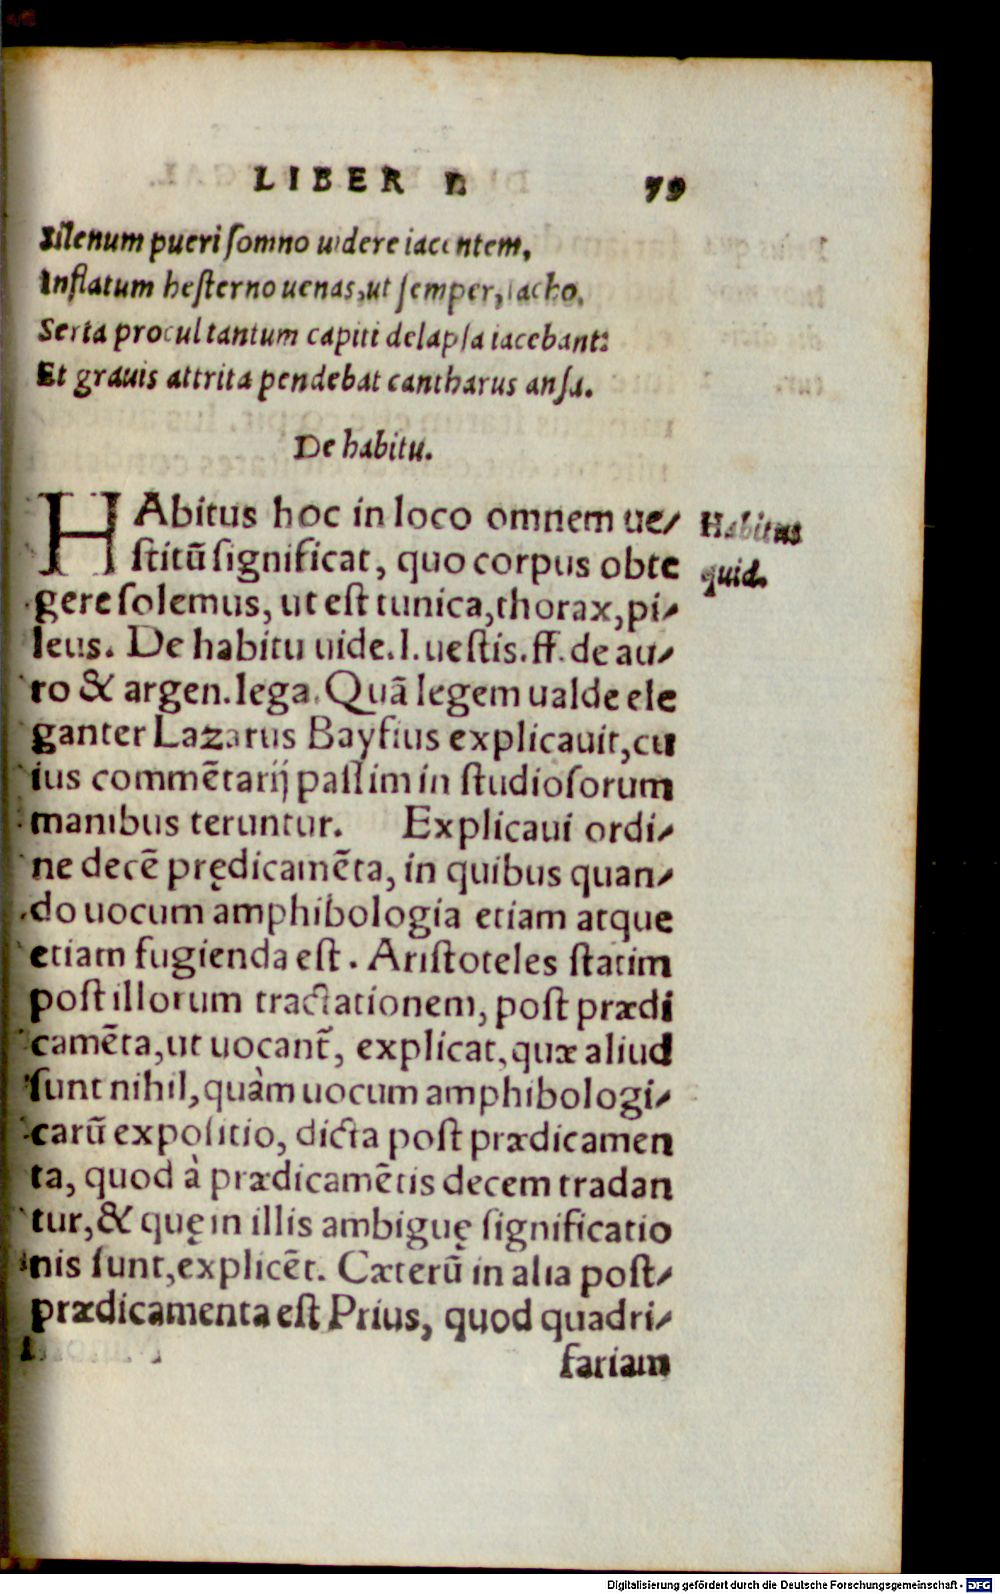 LIBER II. 79
Silenum pueri somno uidere iacentem,
Inflatum hesterno uenas, ut semper, iacho.
Serta procul tantum capiti delapsa iacebant:
Et grauis attrita pendebat cantharus ansa.
De habitu.
HAbitus hoc in loco omnem ue-
stitũ significat, quo corpus obte
gere solemus, ut est tunica, thorax, pi-
leus. De habitu uide. l. uestis. ff. de au-
ro & argen. lega. Quã legem ualde ele
ganter Lazarus Bayfius explicauit, cu
ius commẽtarij passim in studiosorum
manibus teruntur. Explicaui ordi-
ne decẽ prędicamẽta, in quibus quan-
do uocum amphibologia etiam atque
etiam fugienda est. Aristoteles statim
post illorum tractationem, post prædi
camẽta, ut uocant̃, explicat, quæ aliud
sunt nihil, quàm uocum amphibologi-
carũ expositio, dicta post prædicamen
ta, quod à prædicamẽtis decem tradan
tur, & quę in illis ambiguę significatio
nis sunt, explicẽt. Cæterũ in alia post-
prædicamenta est Prius, quod quadri-
fariam
Habitus
quid.
Digitalisierung gefördert durch die Deutsche Forschungsgemeinschaft - DFG